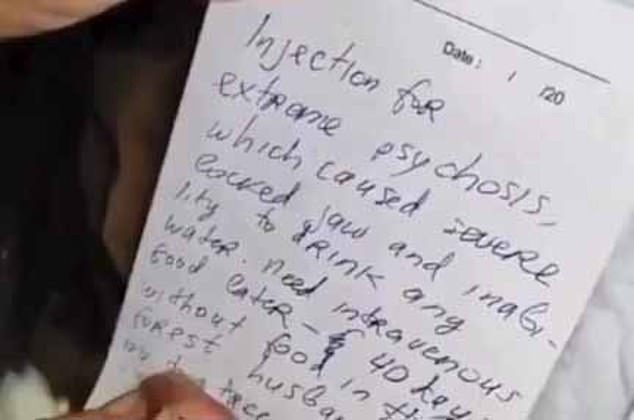 Date: / /20
Injection for
extreme psychosis,
which caused severe
locked jaw and inabi-
lity to drink any
water. Need intravenous
food later - 40 day
without food in
forest husban